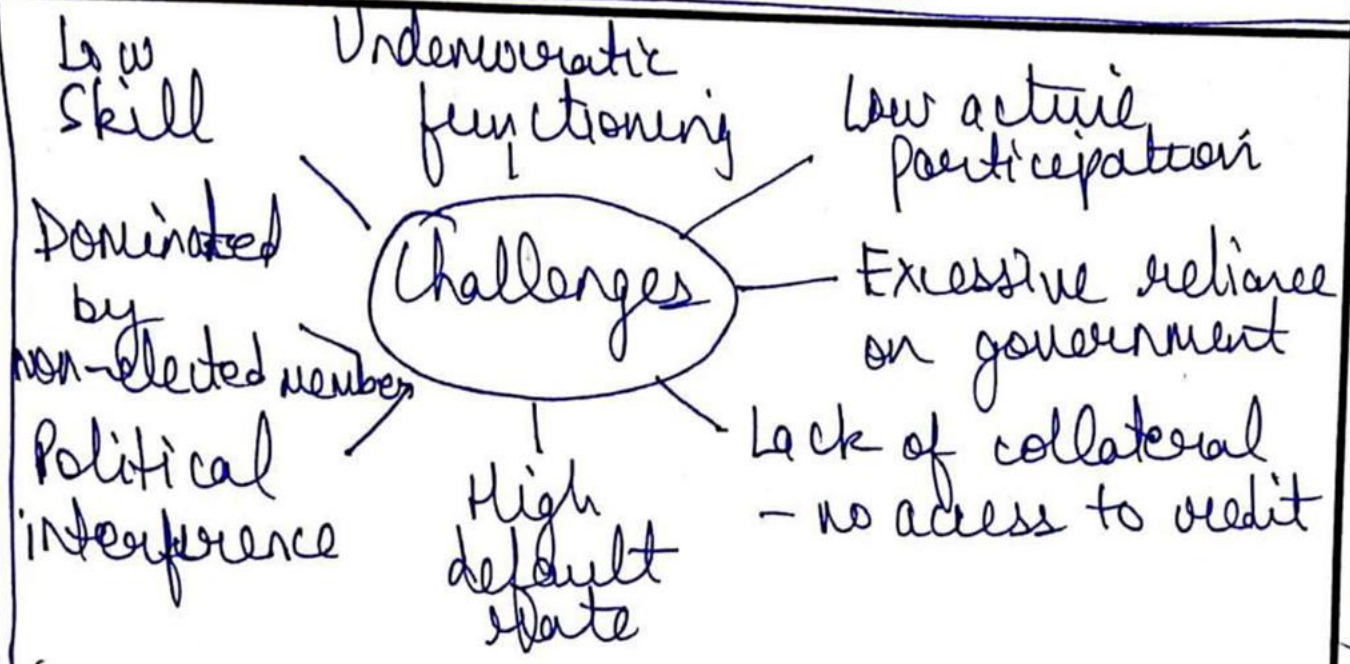 Low
Skill
Undemocratic
functioning
Low active
participation
Dominated
by
non-elected member
Challenges
Excessive reliance
on government
Political
interference
High
default
rate
Lack of collateral
- no access to credit